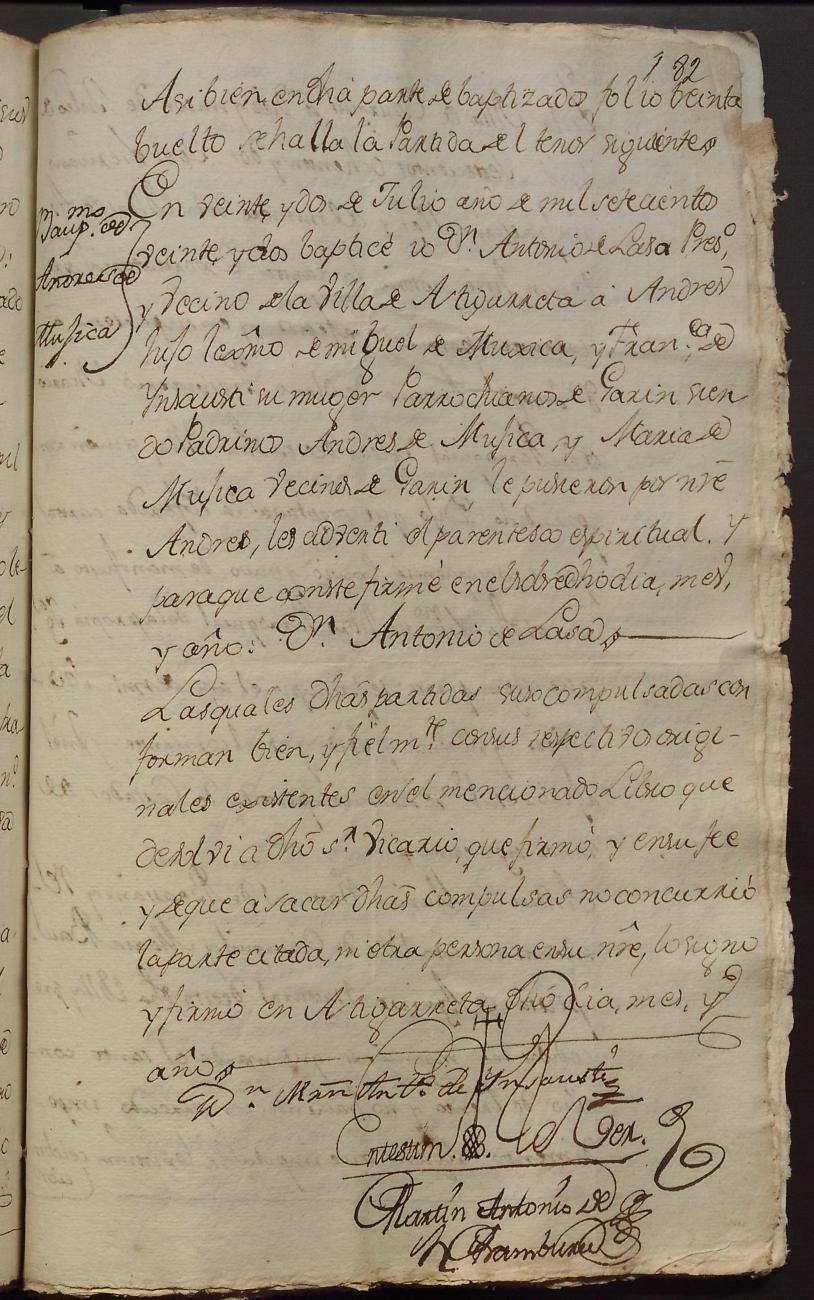 182
Asi bien en dha parte de baptizados folio veinta
buelto se halla la Partida del tenor siguiente
Baup.mo de
Andres de
Musica
En veinte y dos de Julio año de mil setecientos
veinte y dos baptice io Dn. Antonio de Lasa Presvo,
y Vecino de la Villa de Astigarreta a Andres
hijo lexmo de miguel de Muxica, y Fran.ca de
Ynsausti su muger Parrochianos de Garin sien
do Padrinos Andres de Musica, y Maria de
Musica vecinos de Garin le pusieron por nre
Andres, les adverti el parentesco espiritual. Y
para que conste firmé en el sobredho dia, mes,
y año. Dn. Antonio de Lasa
Las quales dhas partidas suso compulsadas con
forman bien, y fielm.te con sus respectivos origi-
nales existentes en el mencionado Libro que
devolvi a dho Sr. Vicario, que firmó, y en su fee
y de que a sacar dhas compulsas no concurrió
la parte citada, ni otra persona en su nre, lo signo
y firmo en Astigarreta dho dia, mes, y
año
Dn. Mrn Anto. de Insausti
En testim. de Ver.
Martin Antonio de
Aramburu